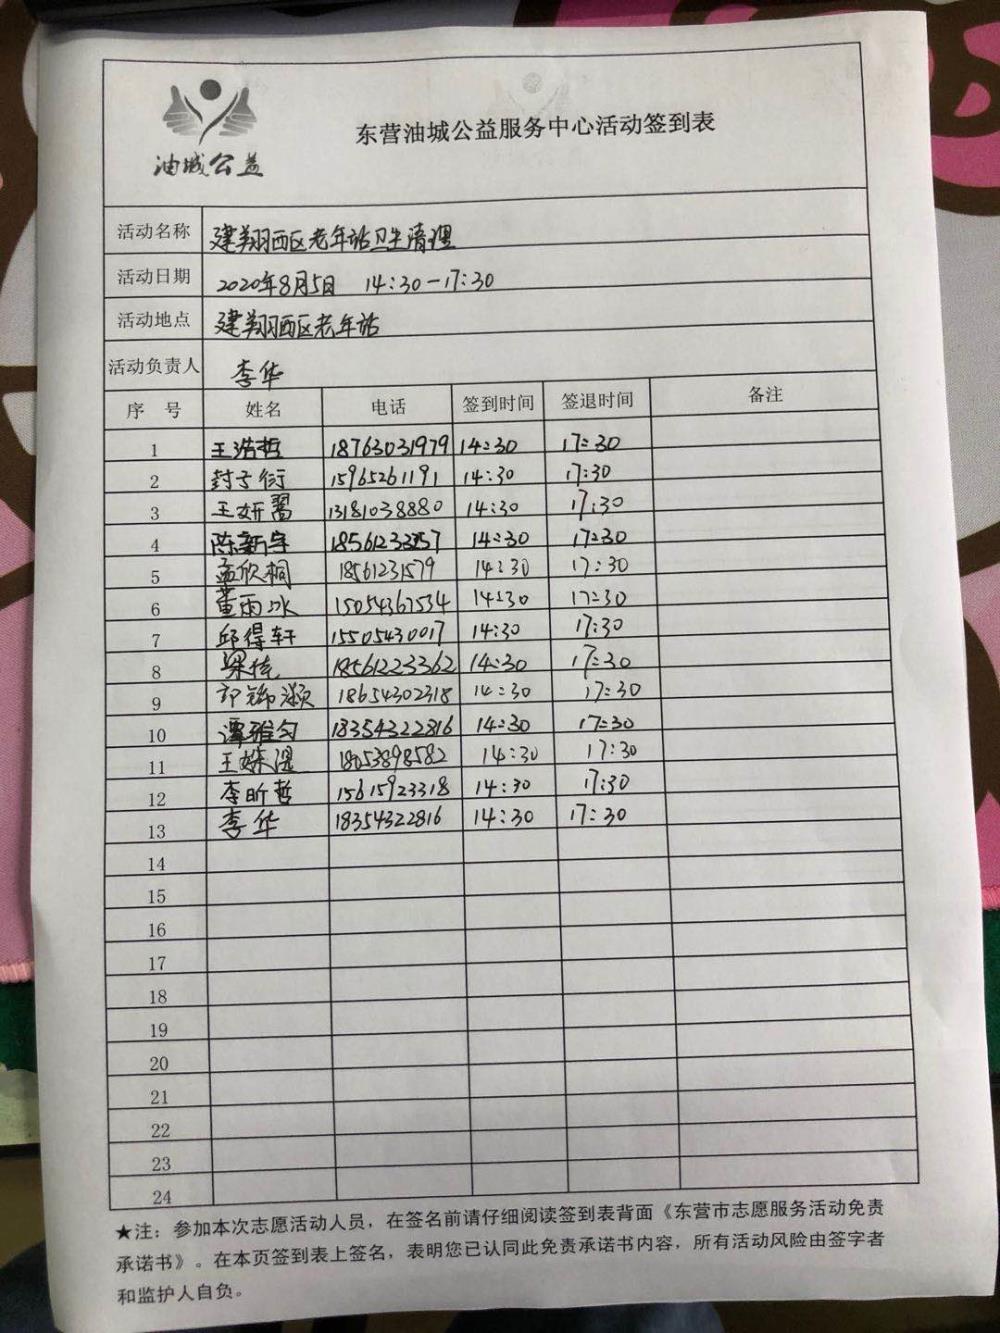 油城公益
东营油城公益服务中心活动签到表
活动名称 建翔西区老年站卫生清理
活动日期 2020年8月5日 14:30-17:30
活动地点 建翔西区老年站
活动负责人 李华
序号 姓名 电话 签到时间 签退时间 备注
1 王浩哲 18763031979 14:30 17:30
2 封子衍 15965261191 14:30 17:30
3 王妍翯 13181038880 14:30 17:30
4 陈新宇 14:30 17:30
5 孟欣桐 18561231579 14:30 17:30
6 董雨冰 15054367534 14:30 17:30
7 邱得轩 15505430017 14:30 17:30
8 18561223362 14:30 17:30
9 18654302318 14:30 17:30
10 谭雅匀 18354322816 14:30 17:30
11 18053898582 14:30 17:30
12 李昕哲 15615923318 14:30 17:30
13 李华 18354322816 14:30 17:30
14
15
16
17
18
19
20
21
22
23
24
★注：参加本次志愿活动人员，在签名前请仔细阅读签到表背面《东营市志愿服务活动免责
承诺书》。在本页签到表上签名，表明您已认同此免责承诺书内容，所有活动风险由签字者
和监护人自负。